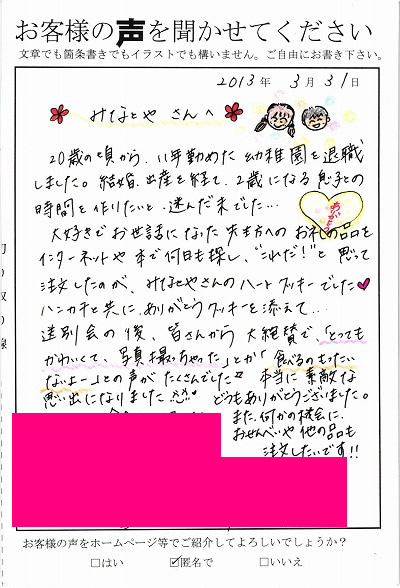 お客様の声を聞かせてください
文章でも箇条書きでもイラストでも構いません。ご自由にお書き下さい。
2013年 3月31日
みなとや さんへ
20歳の頃から、11年勤めた幼稚園を退職
しました。結婚、出産を経て、2歳になる息子との
時間を作りたいと、迷んだ末でした…
ありがとう
大好きでお世話になった先生方へのお礼の品を
インターネットや本で何日も探し、"これだ!"と思って
注文したのが、みなとやさんのハートクッキーでした
ハンカチと共に、ありがとうクッキーを添えて…
送別会の後、皆さんから大絶賛で、「とっても
かわいくて、写真撮っちゃった」とか「食べるのもったい
ないよー」との声がたくさんでした 本当に素敵な
思い出になりました どうもありがとうございました。
また、何かの機会に、
おせんべいや他の品も
注文したいです!!
お客様の声をホームページ等でご紹介してよろしいでしょうか?
□はい ☑匿名で □いいえ